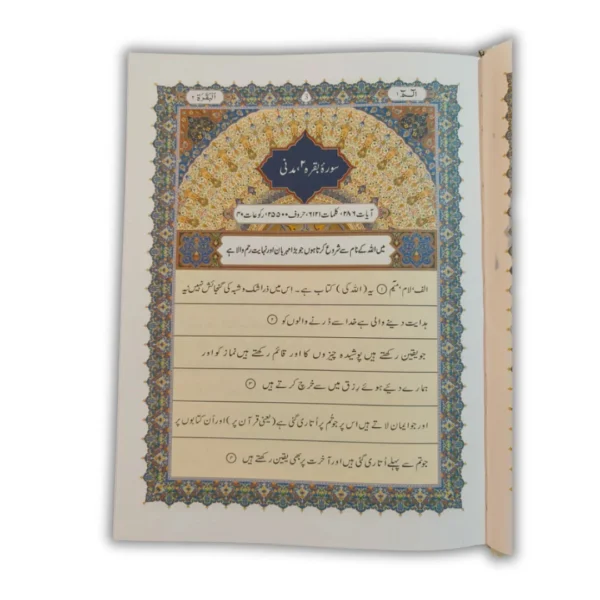 الٓمّٓ ۱
۵
البقرۃ ۲
سورۂ بقرہ ۲، مدنی
آیات ۲۸۶، کلمات ۶۱۲۱، حروف ۲۵۵۰۰، رکوعات ۴۰
میں اللہ کے نام سے شروع کرتا ہوں جو بڑا مہربان اور نہایت رحم والا ہے
الف ، لام ، میم ۱ یہ (اللہ کی) کتاب ہے۔ اس میں ذرا شک و شبہ کی گنجائش نہیں یہ
ہدایت دینے والی ہے خدا سے ڈرنے والوں کو ۲
جو یقین رکھتے ہیں پوشیدہ چیزوں کا اور قائم رکھتے ہیں نماز کو اور
ہمارے دیئے ہوئے رزق میں سے خرچ کرتے ہیں ۳
اور جو ایمان لاتے ہیں اس پر جو تم پر اُتاری گئی ہے (یعنی قرآن پر) اور اُن کتابوں پر
جو تم سے پہلے اُتاری گئی ہیں اور آخرت پر بھی یقین رکھتے ہیں ۴